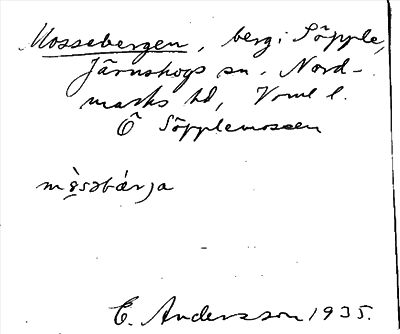 Mossebergen, berg i Söpple,
Järnskogs sn. Nord-
marks hd, Vrml l.
Ö Söpplemossen
E. Andersson 1935.